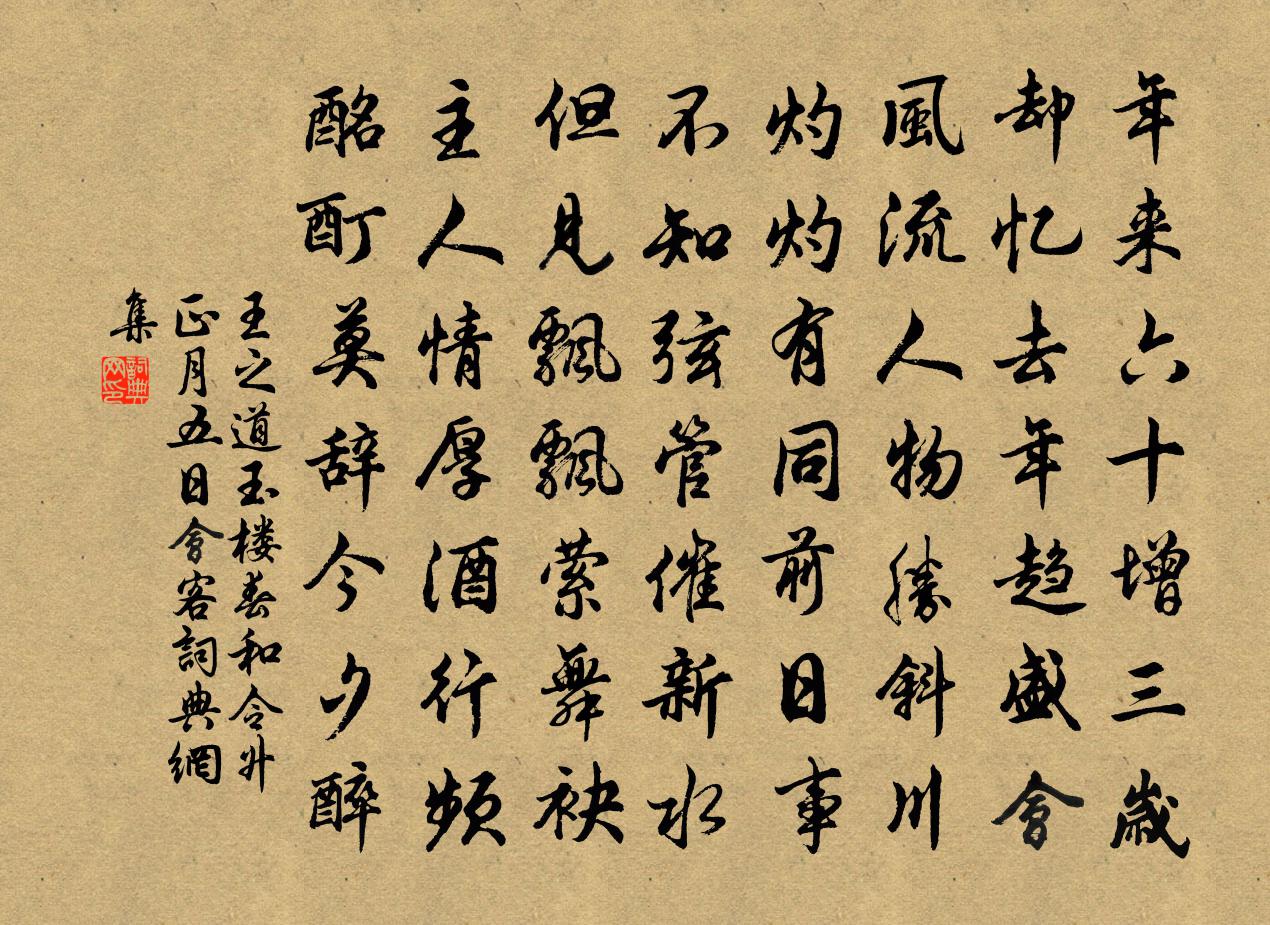 年来六十增三歲
却忆去年趋盛會
風流人物勝斜川
灼灼有同前日事
不知弦管催新水
但見飄飄萦舞袂
主人情厚酒行頻
酩酊莫辞今夕醉
王之道玉楼春和令升
正月五日會客詞典網
集
詞典
网印